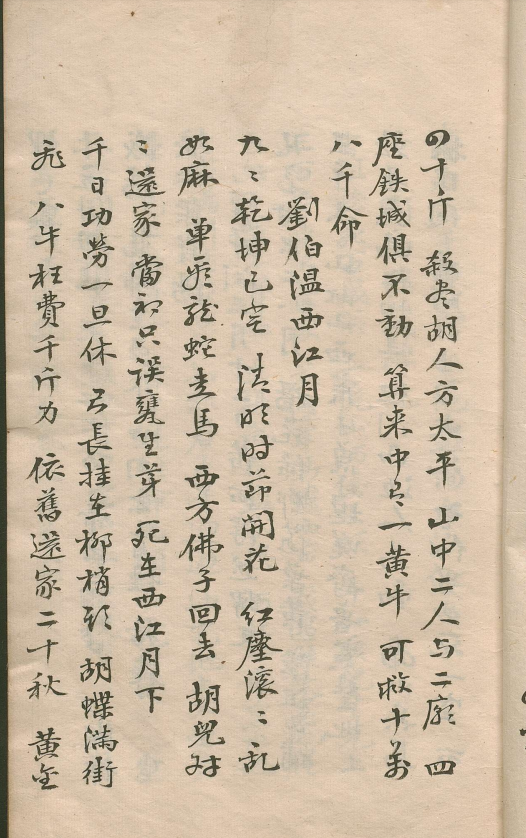 四十斤 殺尽胡人方太平 山中二人与二廊 四
座鉄城俱不動 算来中有一黄牛 可救十萬
八千命
劉伯温西江月
九〻乾坤已定 清明时節開花 紅塵滚〻乱
如麻 单衣龍蛇走馬 西方佛子回去 胡兒对
〻還家 當初只誤甕生芽 死在西江月下
千日功勞一旦休 弓長挂在柳梢頭 胡蝶滿街
飛 八牛枉費千斤力 依舊還家二十秋 黄金